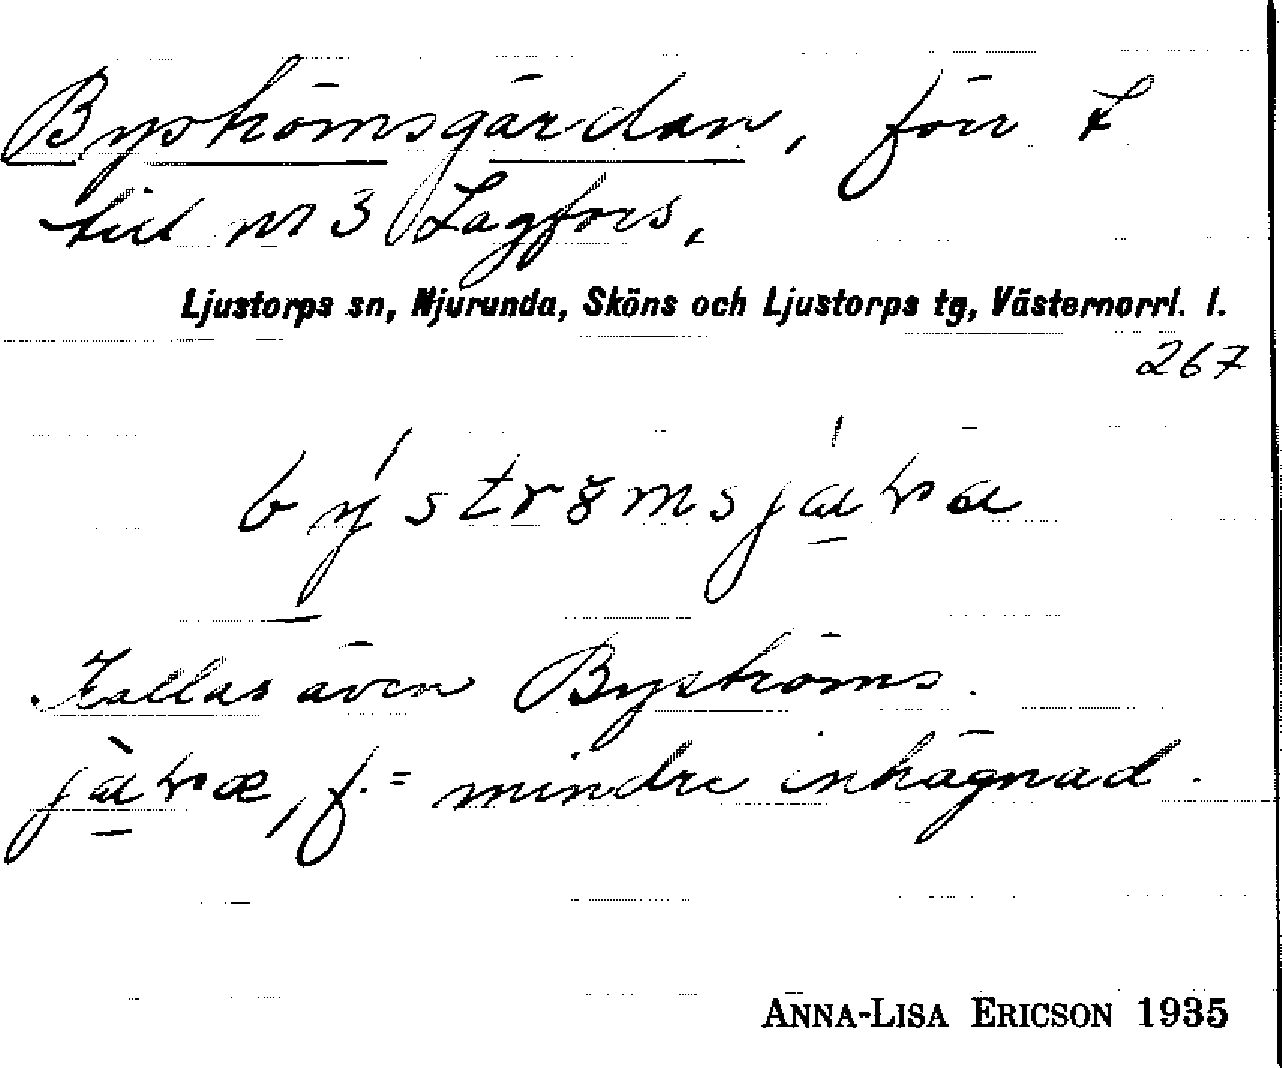 Byströmsgärdan, förr L
till nr 3 Lagfors,
Ljustorps sn, Njurunda, Sköns och Ljustorps tg, Västernorrl. l.
267
Kallas även Byströms.
f. = mindre inhägnad.
ANNA-LISA ERICSON 1935